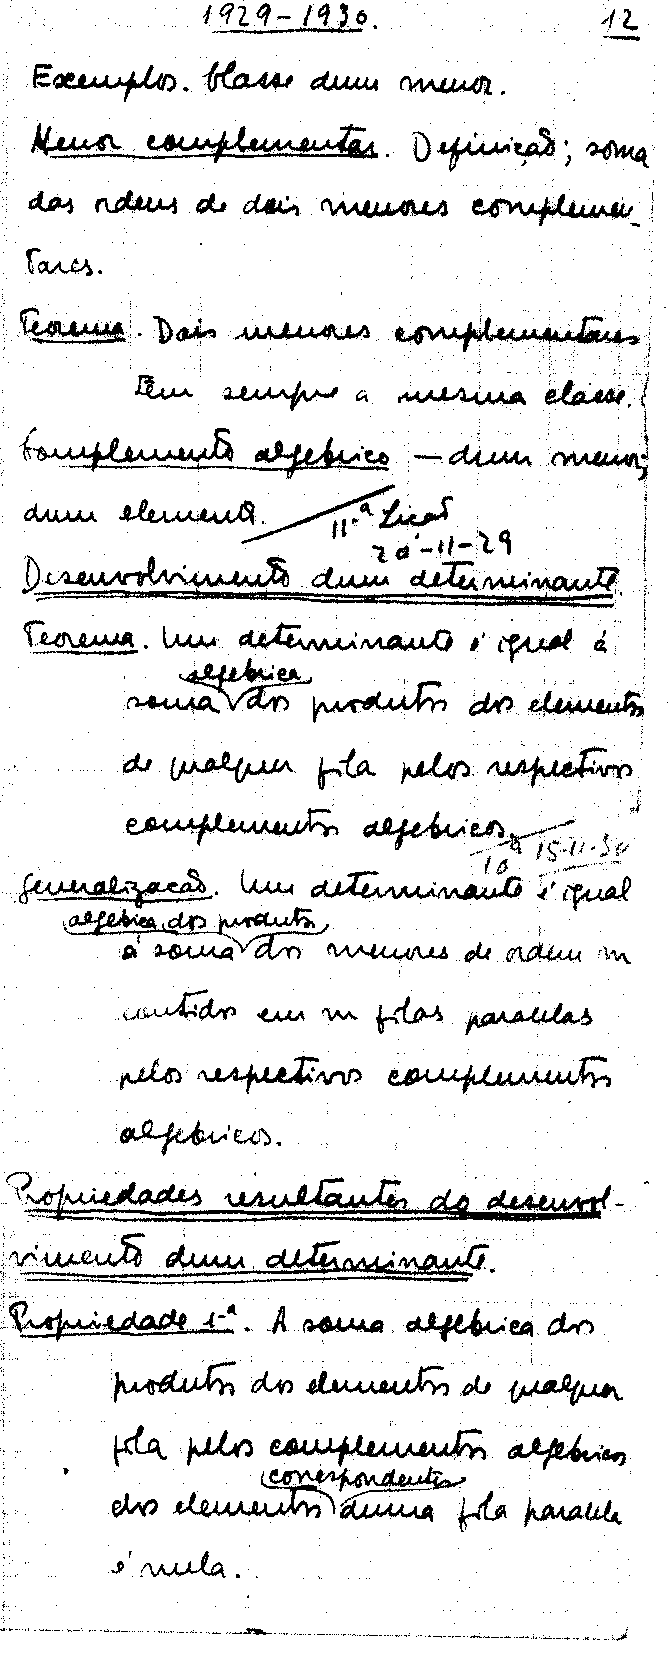 1929-1930. 12
Exemplos. Classe dum menor.
Menor complementar. Definição; soma
das ordens de dois menores complemen-
tares.
Teorema. Dois menores complementares
têm sempre a mesma classe.
Complemento algébrico — dum menor;
dum elemento.
11.ª Lição
20-11-29
Desenvolvimento dum determinante.
Teorema. Um determinante é igual á
algébrica
soma dos produtos dos elementos
de qualquer fila pelos respectivos
complementos algébricos.
10ª 15-11-30
Generalização. Um determinante é igual
algébrica dos produtos
á soma dos menores de ordem m
contidos em m filas paralelas
pelos respectivos complementos
algébricos.
Propriedades resultantes do desenvol-
vimento dum determinante.
Propriedade 1.ª. A soma algébrica dos
produtos dos elementos de qualquer
fila pelos complementos algébricos
correspondentes
dos elementos duma fila paralela
é nula.